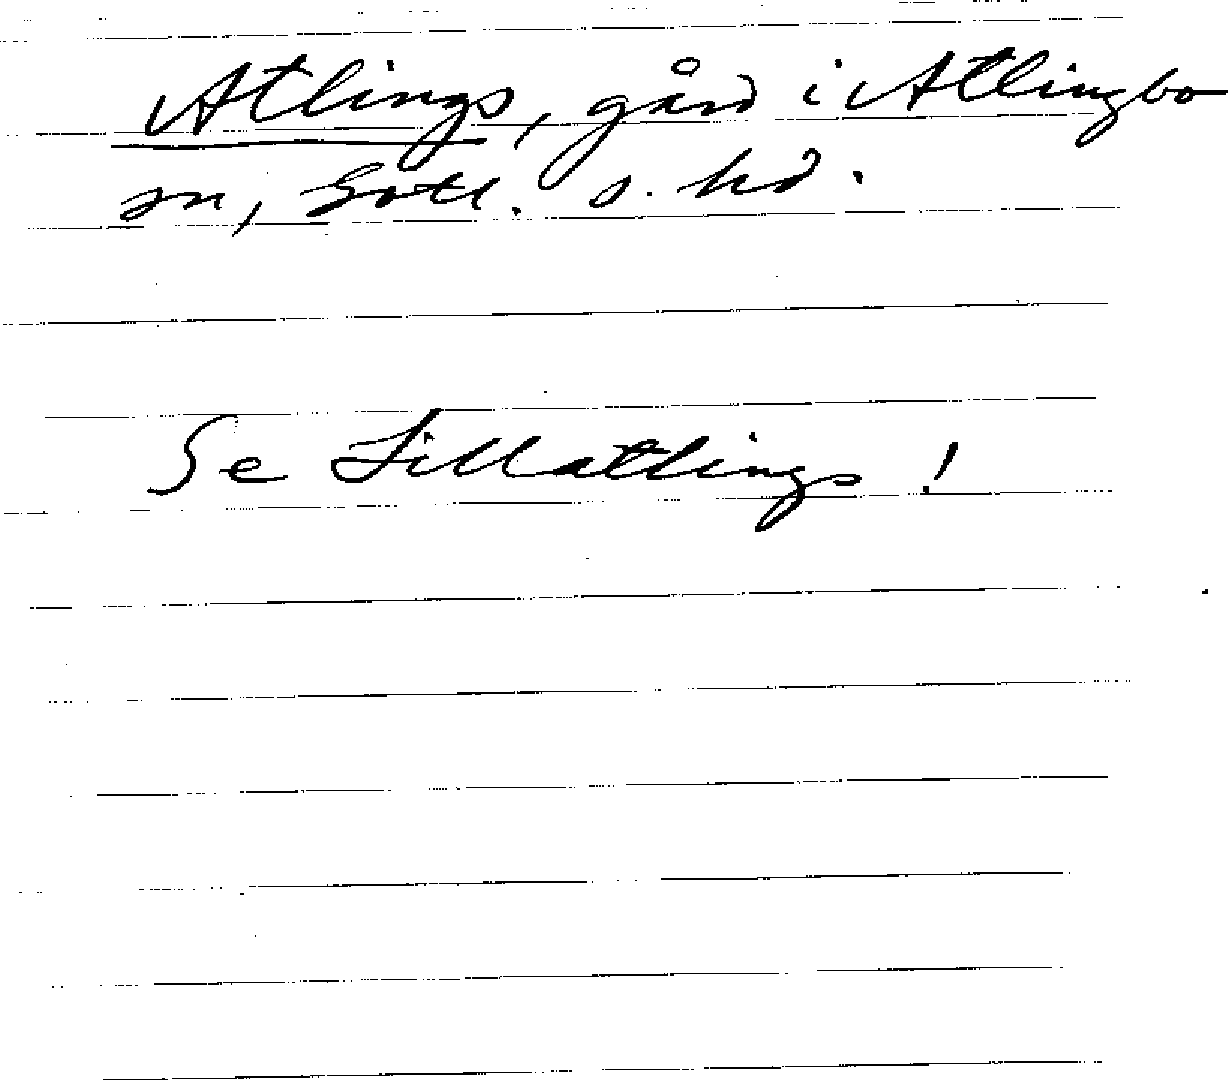 Atlings, gård i Atlingbo
sn, Gotl. s. hd.
Se Lillatlings!